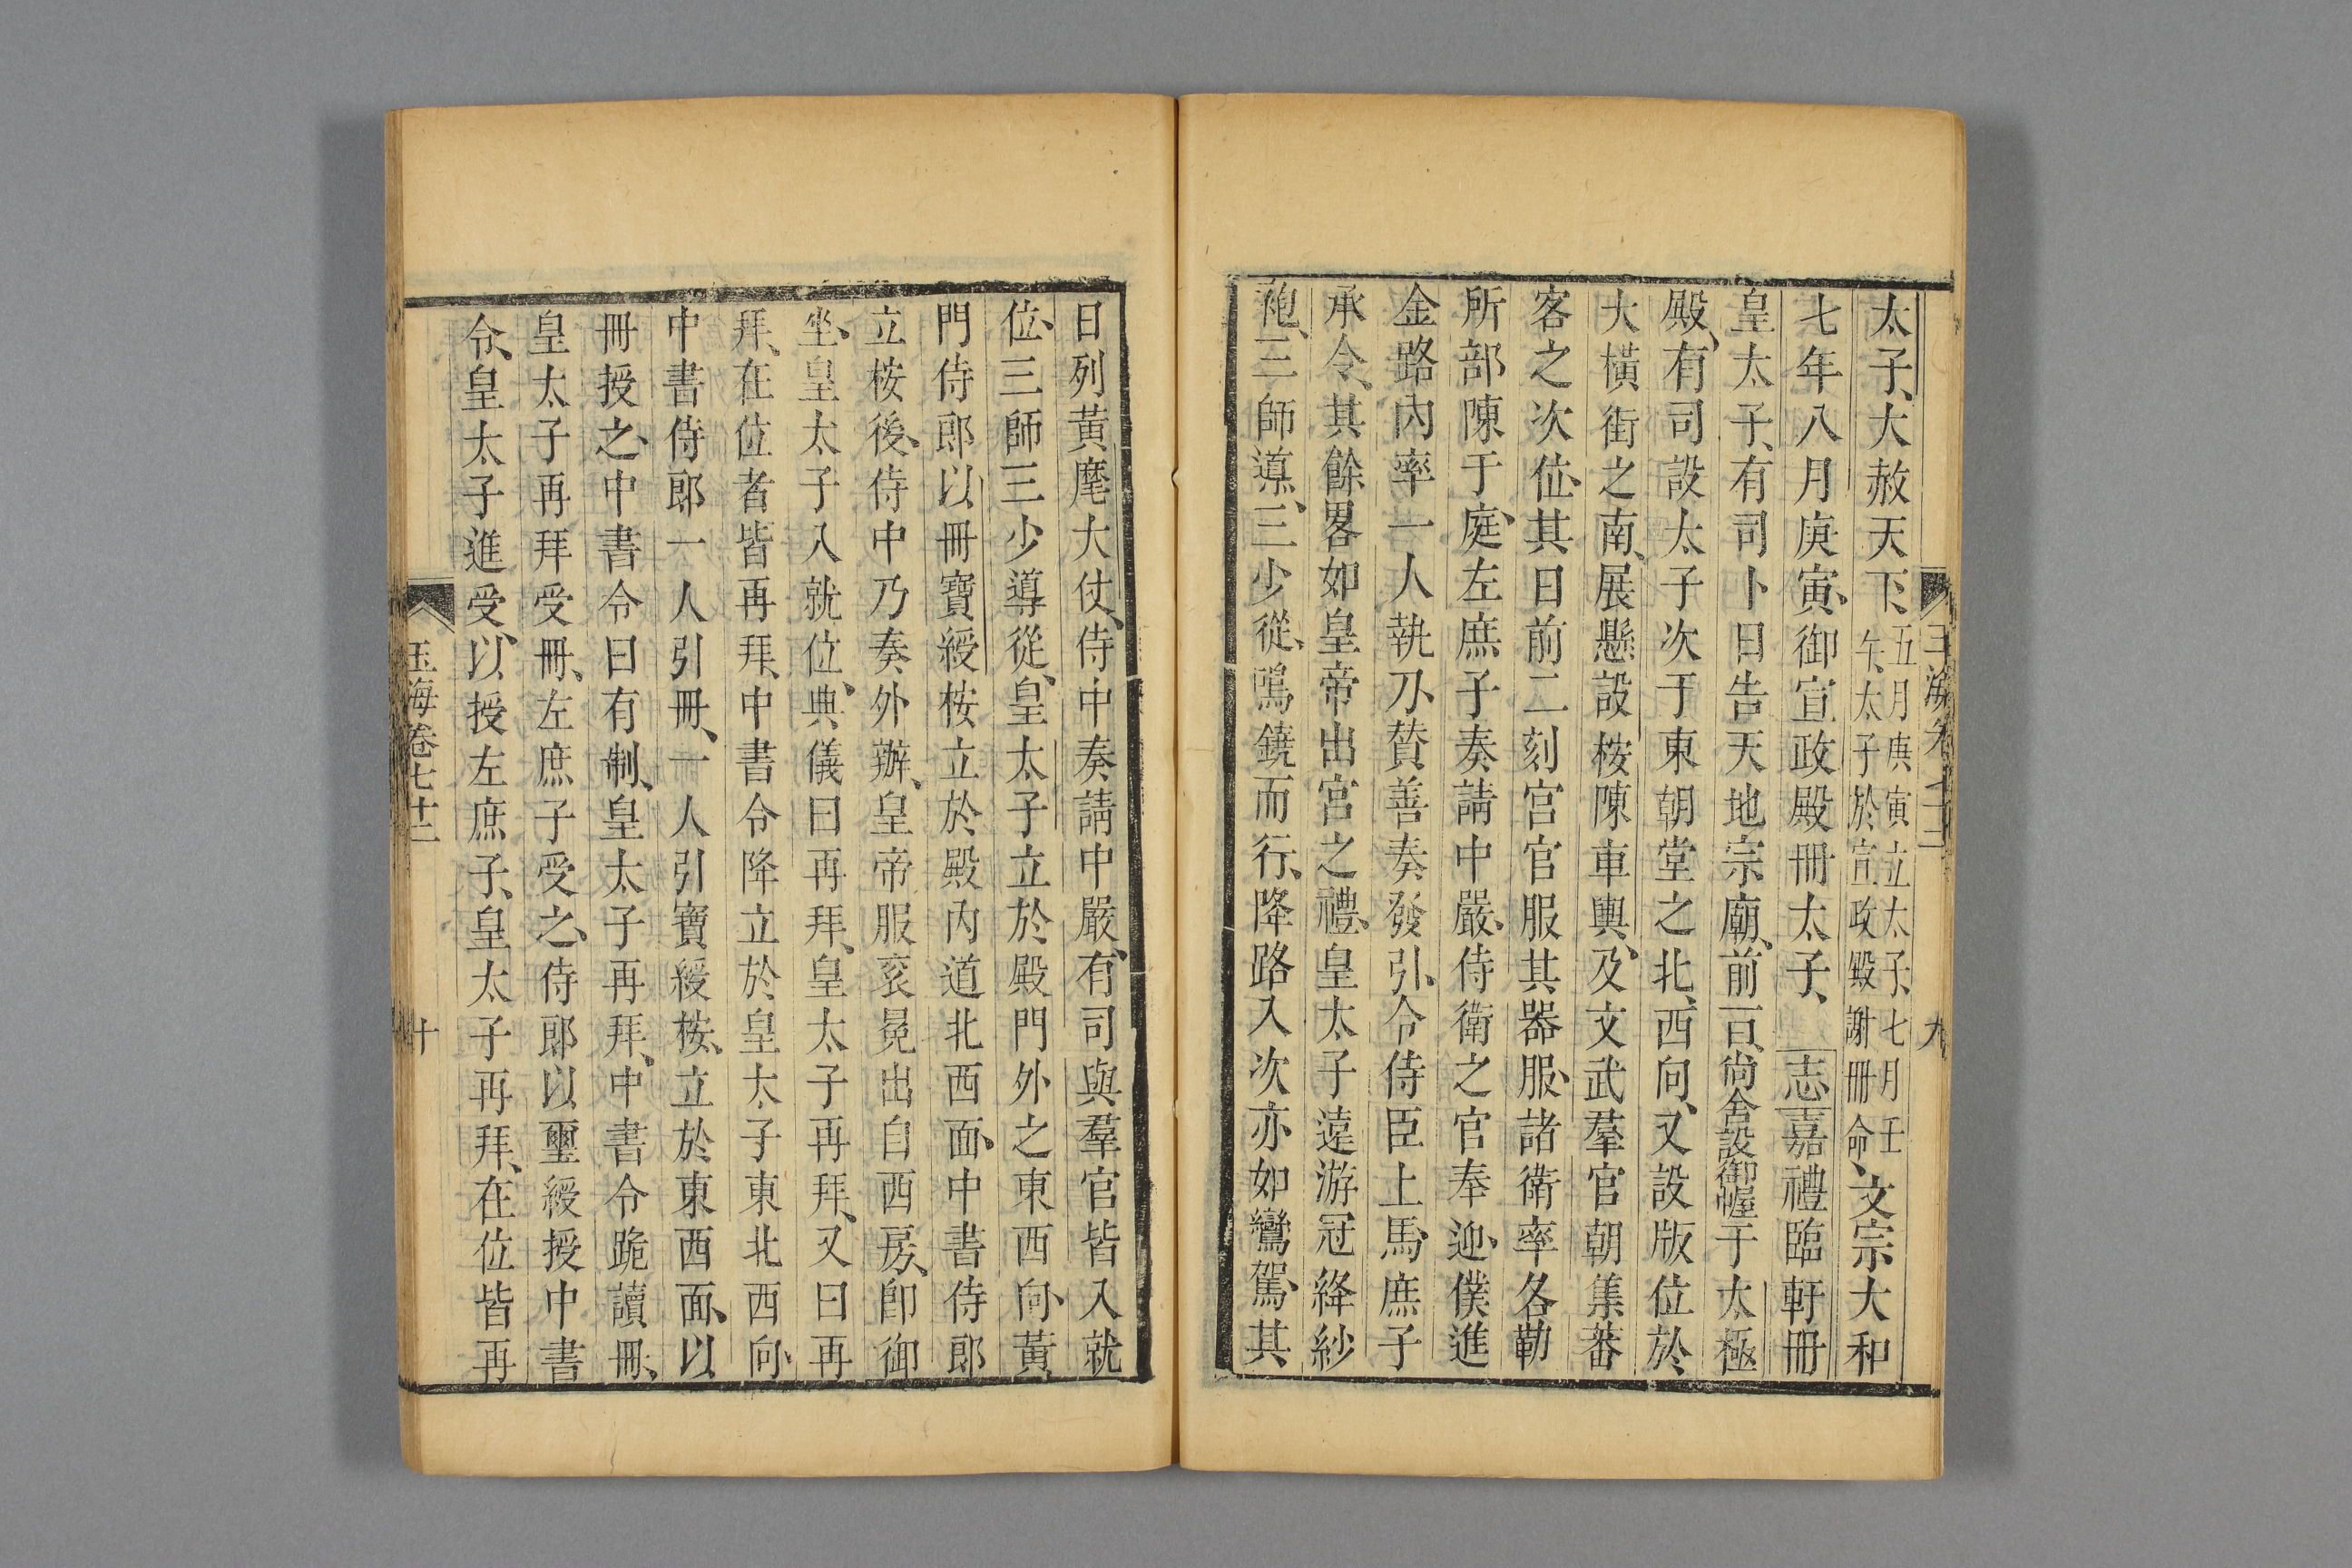 太子、大赦天下、五月庚寅立太子、七月壬午、太子於宣政殿謝冊命、文宗大和
七年八月庚寅、御宣政殿冊太子、志嘉禮臨軒冊
皇太子、有司卜日告天地宗廟、前一日、尚舍設御幄于太極
殿、有司設太子次于東朝堂之北、西向、又設版位於
大橫街之南、展懸設桉陳車輿、及文武羣官朝集蕃
客之次位、其日前二刻宮官服其器服、諸衛率各勒
所部陳于庭、左庶子奏請中嚴、侍衛之官奉迎、僕進
金路內率一人執刀、贊善奏發引、令侍臣上馬、庶子
承令、其餘畧如皇帝出宮之禮、皇太子遠游冠絳紗
袍、三師導、三少從、鳴鐃而行、降路入次亦如鑾駕、其
玉海卷七十二
九
日列黃麾大仗、侍中奏請中嚴、有司與羣官皆入就
位、三師三少導從、皇太子立於殿門外之東西向、黃
門侍郎以冊寶綬桉立於殿內道北西面、中書侍郎
立桉後、侍中乃奏外辦、皇帝服袞冕出自西房、即御
坐、皇太子入就位、典儀曰再拜、皇太子再拜、又曰再
拜、在位者皆再拜、中書令降立於皇太子東北西向、
中書侍郎一人引冊、一人引寶綬桉、立於東西面、以
冊授之、中書令曰有制、皇太子再拜、中書令跪讀冊、
皇太子再拜受冊、左庶子受之、侍郎以璽綬授中書
令、皇太子進受、以授左庶子、皇太子再拜、在位皆再
玉海卷七十二
十